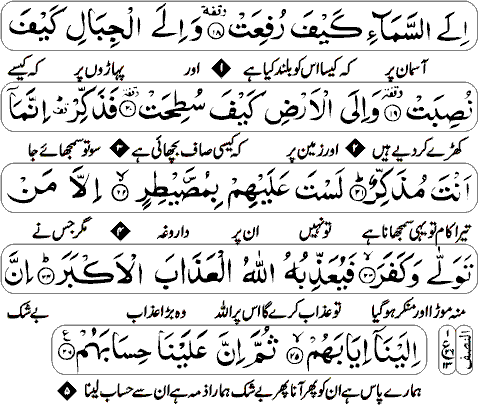 اِلَی السَّمَآءِ كَیْفَ رُفِعَتْ ﴿۱۸﴾ وقفۃ وَاِلَی الْجِبَالِ كَیْفَ
آسمان پر کہ کیسا اس کو بلند کیا ہے ۱ اور پہاڑوں پر کہ کیسے
نُصِبَتْ ﴿۱۹﴾ وقفۃ وَاِلَی الْاَرْضِ كَیْفَ سُطِحَتْ ﴿۲۰﴾ وقفۃ فَذَكِّرْ اِنَّمَاۤ
کھڑے کر دیے ہیں ۲ اور زمین پر کہ کیسی صاف بچھائی ہے ۳ سو تو سمجھائے جا
اَنْتَ مُذَكِّرٌ ﴿۲۱﴾ لَسْتَ عَلَیْهِمْ بِمُصَۜیْطِرٍ ﴿۲۲﴾ اِلَّا مَنْ
تیرا کام تو یہی سمجھانا ہے تو نہیں ان پر داروغہ ۴ مگر جس نے
تَوَلّٰی وَكَفَرَ ﴿۲۳﴾ فَیُعَذِّبُهُ اللّٰهُ الْعَذَابَ الْاَكْبَرَ ﴿۲۴﴾ اِنَّ
منہ موڑا اور منکر ہو گیا تو عذاب کرے گا اس پر اللہ وہ بڑا عذاب بے شک
اِلَیْنَاۤ اِیَابَهُمْ ﴿۲۵﴾ ثُمَّ اِنَّ عَلَیْنَا حِسَابَهُمْ ﴿۲۶﴾ ع
ہمارے پاس ہے ان کو پھر آنا پھر بے شک ہمارا ذمہ ہے ان سے حساب لینا ۵